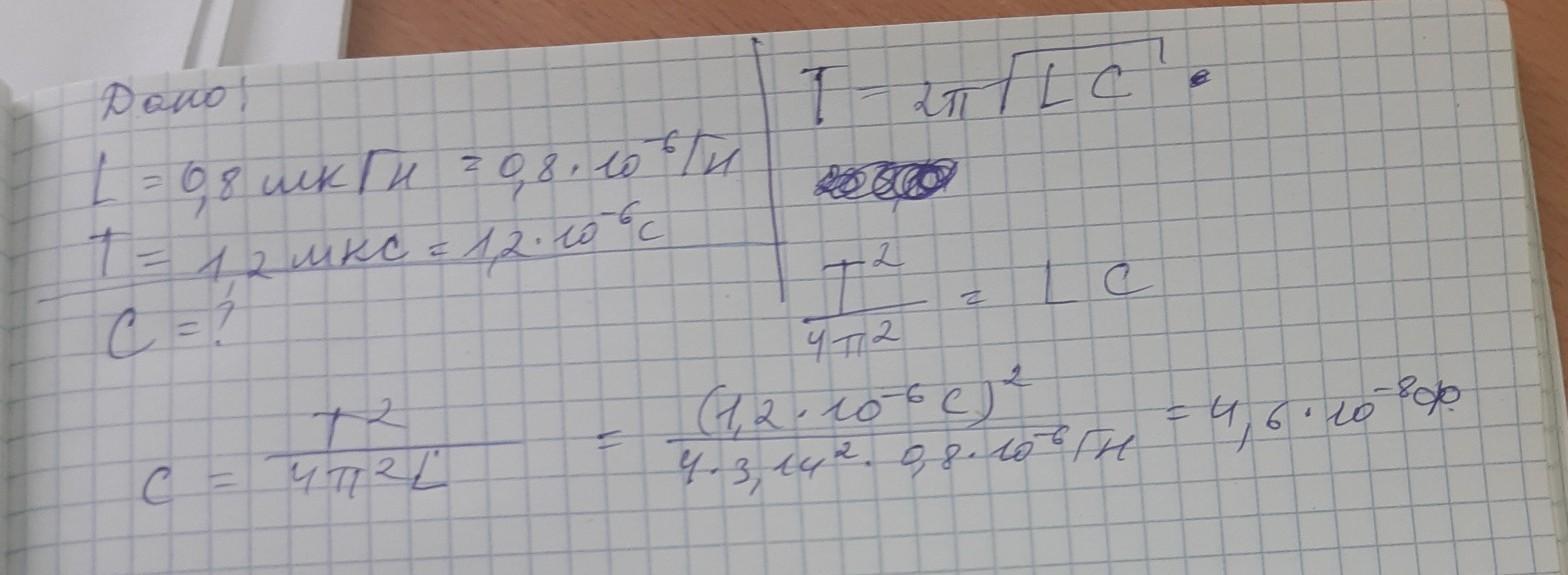 Дано:
L = 0,8 мкГн = 0,8·10⁻⁶Гн
T = 1,2 мкс = 1,2·10⁻⁶с
C = ?
T = 2π√LC
T²/4π² = LC
C = T²/4π²L = (1,2·10⁻⁶с)²/4·3,14²·0,8·10⁻⁶Гн = 4,6·10⁻⁸Ф.